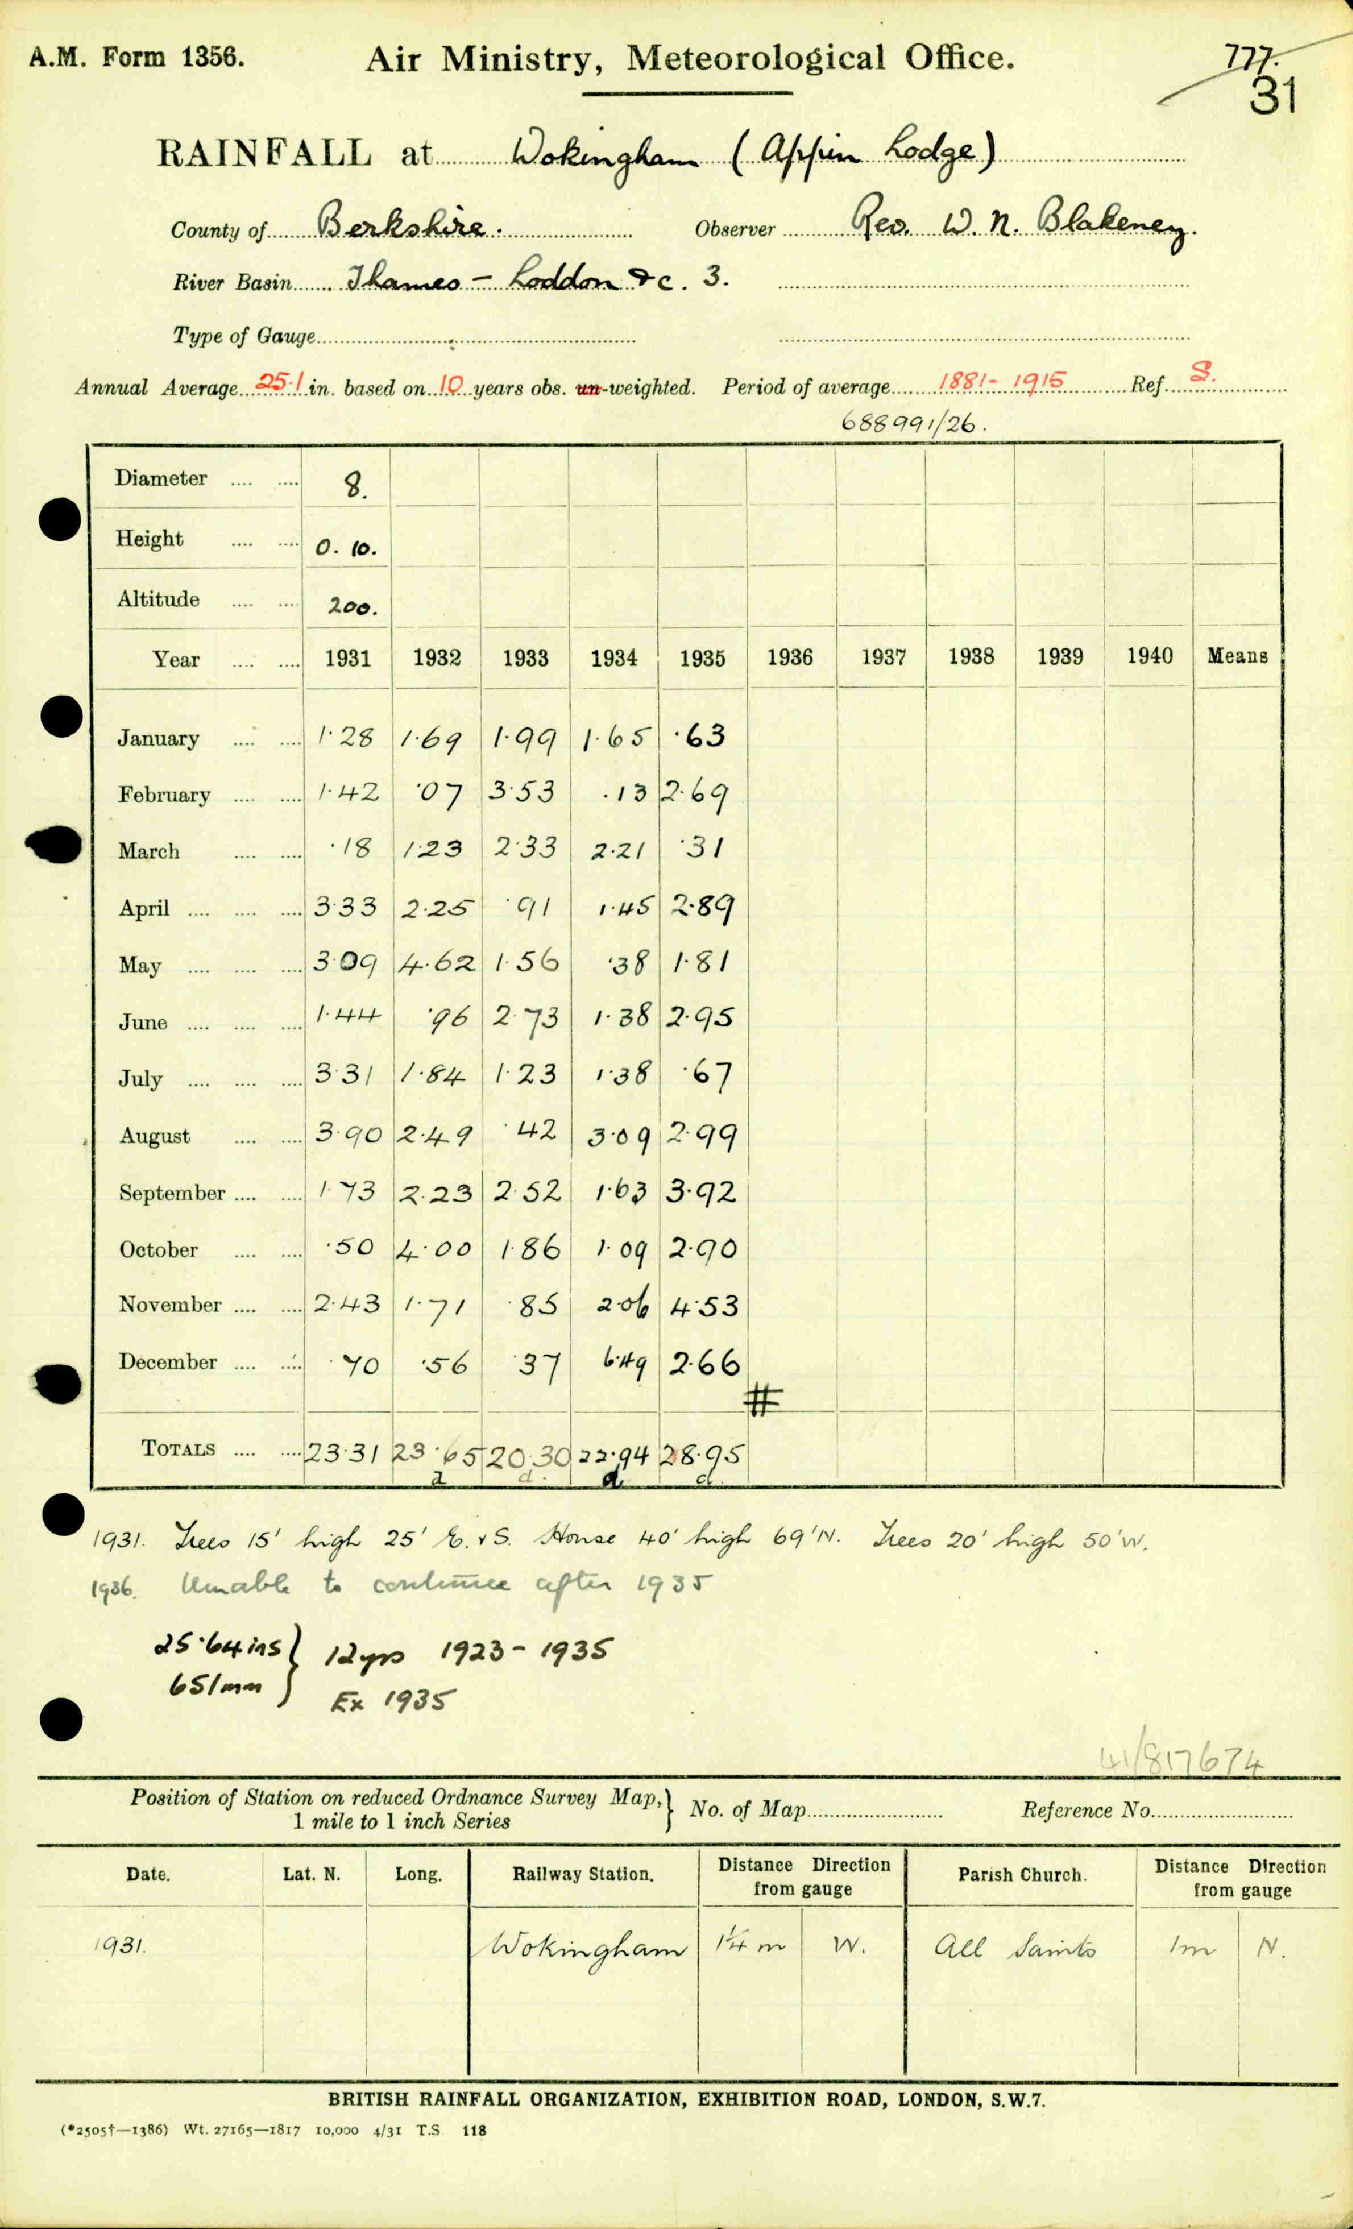 A.M. Form 1356.
Air Ministry, Meteorological Office.
777.
31
RAINFALL at Wokingham (Appin Lodge)
County of Berkshire. Observer Rev. W. N. Blakeney.
River Basin Thames – Loddon &c. 3.
Type of Gauge
Annual Average 25.1 in. based on 10 years obs. un-weighted. Period of average 1881-1915 Ref. S.
688991/26.
Diameter .... .... 8.
Height .... .... 0. 10.
Altitude .... .... 200.
Year .... .... 1931 1932 1933 1934 1935 1936 1937 1938 1939 1940 Means
January .... .... 1.28 1.69 1.99 1.65 .63
February .... .... 1.42 .07 3.53 .13 2.69
March .... .... .18 1.23 2.33 2.21 .31
April .... .... .... 3.33 2.25 .91 1.45 2.89
May .... .... .... 3.09 4.62 1.56 .38 1.81
June .... .... .... 1.44 .96 2.73 1.38 2.95
July .... .... .... 3.31 1.84 1.23 1.38 .67
August .... .... 3.90 2.49 .42 3.09 2.99
September .... .... 1.73 2.23 2.52 1.63 3.92
October .... .... .50 4.00 1.86 1.09 2.90
November .... .... 2.43 1.71 .85 2.06 4.53
December .... .... .70 .56 .37 6.49 2.66
#
TOTALS .... .... 23.31 23.65 20.30 22.94 28.95
d d. d d.
1931. Trees 15' high 25' E. & S. House 40' high 69' N. Trees 20' high 50' W.
1936. Unable to continue after 1935
25.64 ins } 12 yrs 1923 - 1935
651 mm } Ex 1935
41/817674
Position of Station on reduced Ordnance Survey Map, } No. of Map Reference No.
1 mile to 1 inch Series
Date. Lat. N. Long. Railway Station. Distance Direction from gauge Parish Church. Distance Direction from gauge
1931. Wokingham 1¼ m W. All Saints 1m N.
BRITISH RAINFALL ORGANIZATION, EXHIBITION ROAD, LONDON, S.W.7.
(*2505†—1386) Wt. 27165—1817 10,000 4/31 T.S. 118